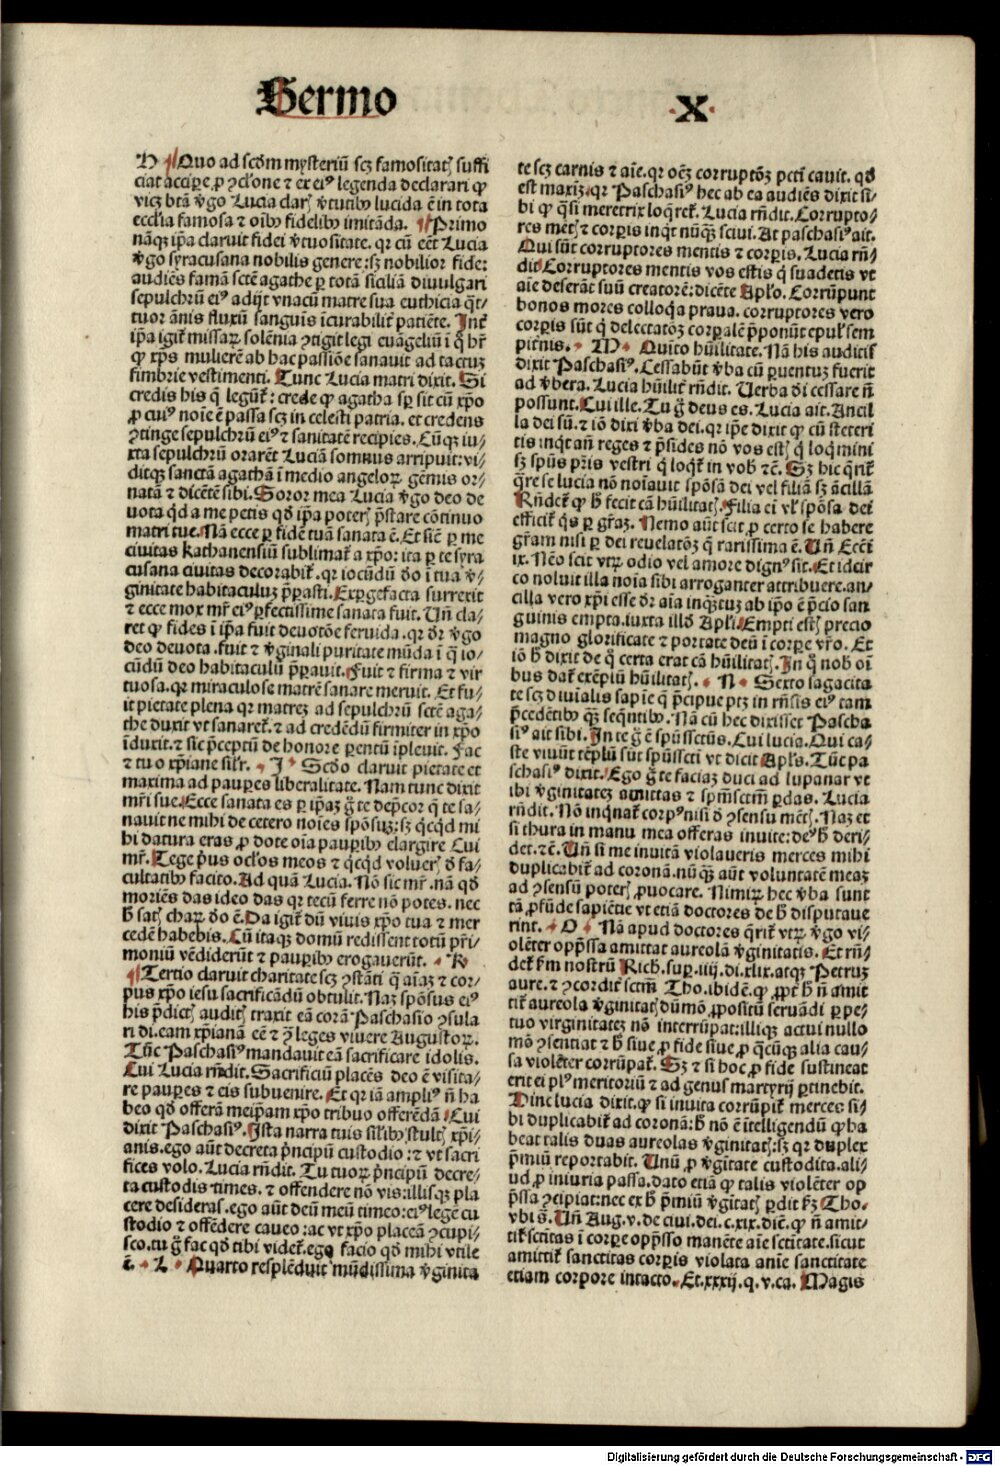 Sermo
X
H ¶Quo ad scďm mysteriū scꝫ famositatꝭ suffi
ciat accipe ꝓ ꝯcl'one ⁊ ex eiꝰ legenda declarari ꝙ
btā v̄go Lucia v̄tutibꝰ lucida ē in tota
eccl'ia famosa ⁊ oībꝰ fidelibꝰ imitāda. ¶Primo
nāqꝫ ip̄a claruit fidei v̄tuositate. qꝛ cū eēt Lucia
v̄go syracusana nobilis genere: sꝫ nobilior fide:
audiēs famā sctē agathe ꝑ totā siciliā diuulgari
sepulchrū eiꝰ adijt vnacū matre sua euthicia q̄t⸗
tuor ānis fluxū sanguīs īcurabilit̄ patiēte. Int̄
ip̄a igit̄ missaꝝ solēnia ꝯtigit legi euāgeliū ī q̊ hr̄
ꝙ xp̄s mulierē ab hac passiōe sanauit ad tactuꝫ
fimbrie vestimenti. Tunc Lucia matri dixit. Si
credis his q̄ legūt̄: crede ꝙ agatha sꝑ sit cū xp̄o
ꝓ cuiꝰ noīe ē passa scꝫ in celesti patria. et credens
ꝯtinge sepulchrū eiꝰ ⁊ sanitatē recipies. Cūqꝫ iu⸗
xta sepulchrū orarēt Luciā somnus arripuit: vi⸗
ditqꝫ sanctā agathā ī medio angeloꝝ gēmis or⸗
natā ⁊ dicētē sibi. Soror mea Lucia v̄go deo de
uota qd a me petis qď ip̄a poterꝭ p̄stare cōtinuo
matri tue. Nā ecce ꝑ fidē tuā sanata ē. Et sic̄ ꝑ me
ciuitas kathanensiū sublimat̄ a xp̄o: ita ꝑ te syra
cusana ciuitas decorabit̄. qꝛ iocūdū ďo ī tua v̄⸗
ginitate habitaculuꝫ p̄ꝑasti. Exꝑgefacta surrexit
⁊ ecce mox mr̄ eiꝰ ꝑfectissime sanata fuit. Un̄ cla⸗
ret ꝙ fides ī ip̄a fuit deuotōe feruida. qꝛ ďr v̄go
deo deuota. fuit ⁊ v̄ginali puritate mūda ī q̊ io⸗
cūdū deo habitaculū p̄ꝑauit. Fuit ⁊ firma ⁊ vir
tuosa. qꝛ miraculose matrē sanare meruit. Et fu⸗
it pietate plena qꝛ matreꝫ ad sepulchrū sctē aga⸗
the duxit vt sanaret̄. ⁊ ad credēdū firmiter in xp̄o
īduxit. ⁊ sic p̄ceptū de honore ꝑentū īpleuit. Fac
⁊ tu o xp̄iane sil'r. I Scďo claruit pietate et
maxima ad pauꝑes liberalitate. Nam tunc dixit
mr̄i sue. Ecce sanata es ꝑ ip̄aꝫ g̊ te dep̄cor q̄ te sa⸗
nauit ne mihi de cetero noīes spōsuꝫ: sꝫ qcqd mi
hi datura eras ꝓ dote oīa pauꝑibꝰ elargire Cui
mr̄. Tege p̄us ocl'os meos ⁊ qcqd voluerꝭ ď fa⸗
cultatibꝰ facito. Ad quā Lucia. Nō sic mr̄. nā qď
moriēs das ideo das qꝛ tecū ferre nō potes. nec
h̄ satꝭ charꝝ ďo ē. Da igit̄ dū viuis xp̄o tua ⁊ mer
cedē habebis. Cū itaqꝫ domū redissent totū pr̄i⸗
moniū vēdiderūt ⁊ pauꝑibꝰ erogauerūt. K
¶Tertio claruit charitate scꝫ ꝯstāti q̄ aīaꝫ ⁊ cor⸗
pus xp̄o iesu sacrificādū obtulit. Naꝫ spōsus eiꝰ
his p̄dictꝭ auditꝭ traxit eā corā Paschasio ꝯsula
ri di. eam xp̄ianā eē ⁊ ꝯ leges viuere Augustoꝝ.
Tūc Paschasiꝰ mandauit eā sacrificare idolis.
Cui Lucia rn̄dit. Sacrificiū placēs deo ē visita⸗
re pauꝑes ⁊ eis subuenire. Et qꝛ iā ampliꝰ n̄ ha
beo qď offerā meip̄am xp̄o tribuo offerēdā. Cui
dixit Paschasiꝰ. Ista narra tuis sil'ibꝰ stultꝭ xp̄i⸗
anis. ego aūt decreta p̄ncipū custodio: ⁊ vt sacri
fices volo. Lucia rn̄dit. Tu tuoꝝ p̄ncipū decre⸗
ta custodis times. ⁊ offendere nō vis: illisqꝫ pla
cere desideras. ego aūt deū meū timeo: eiꝰ legē cu
stodio ⁊ offēdere caueo: ac vt xp̄o placeā ꝯcupi⸗
sco. tu g̊ fac qď tibi videt̄. ego facio qď mihi vtile
ē. L Quarto resplēduit mūdissima v̄ginita
te scꝫ carnis ⁊ aīe. qꝛ oēꝫ corruptōꝫ pctī cauit. qď
est maxiꝫ. qꝛ Paschasiꝰ hec ab ea audiēs dixit si⸗
bi ꝙ q̄si meretrix loq̄ret̄. Lucia rn̄dit. Corrupto⸗
res mētꝭ ⁊ corꝑis inqt nūqꝫ sciui. At paschasiꝰ ait.
Qui sūt corruptores mentis ⁊ corꝑis. Lucia rn̄⸗
dit Corruptores mentis vos estis q̄ suadetis vt
aīe deserāt suū creatorē: dicēte Apl'o. Corrūpunt
bonos mores colloqa praua. corruptores vero
corꝑis sūt q̄ delectatōꝫ corꝑalē p̄ponūt epul' sem
piternis. M Quīto hūilitate. Nā his auditis
dixit Paschasiꝰ. Cessabūt v̄ba cū ꝑuentuꝫ fuerit
ad v̄bera. Lucia hūilit̄ rn̄dit. Uerba ďi cessare n̄
possunt. Cui ille. Tu g̊ deus es. Lucia ait. Ancil
la dei sū. ⁊ iō dixi v̄ba dei. qꝛ ip̄e dixit ꝙ cū steteri
tis inqt aūn reges ⁊ p̄sides nō vos estꝭ q̄ loqmini
sꝫ spūs pr̄is vestri q̄ loqt̄ in vob ⁊ē. Sꝫ hic q̄rit̄
q̄re se lucia nō noīauit spōsā dei vel filiā sꝫ ācillā
Rn̄det̄ ꝙ h̄ fecit cā hūilitatꝭ. Filia eī vl' spōsa dei
efficit̄ qs ꝑ gr̄aꝫ. Nemo aūt scit ꝓ certo se habere
gr̄am nisi ꝑ dei reuelatōꝫ q̄ rarissima ē. Un̄ Ecc'i
ix. Nēo scit vtꝝ odio vel amore dignꝰ sit. Et idcir
co noluit illa noīa sibi arroganter attribuere. an⸗
cilla vero xp̄i esse ďr aīa inq̄tuꝫ ab ip̄o ē p̄cio san
guinis empta. iuxta illď Apl'i. Empti estꝭ precio
magno glorificate ⁊ portate deū ī corꝑe vr̄o. Et
iō h̄ dixit de q̊ certa erat cā hūilitatꝭ. In q̊ nob oī
bus dat̄ exēpiū hūilitatꝭ. N Sexto sagacita
te scꝫ diuīalis sapīe q̄ p̄cipue ptꝫ in rn̄sis eiꝰ tam
p̄cedētibꝰ qꝫ seq̄ntibꝰ. Nā cū hec dixisset Pascha
siꝰ ait sibi. In te g̊ ē spūssctūs. Cui lucia. Qui ca⸗
ste viuūt tēplū sūt spūsscti vt dicit Apl's. Tūc pa
schasiꝰ dixit. Ego g̊ te faciaꝫ duci ad lupanar vt
ibi v̄ginitateꝫ amittas ⁊ spm̄sctm̄ ꝑdas. Lucia
rn̄dit. Nō inqnat̄ corpꝰ nisi ď ꝯsensu mētꝭ. Naꝫ et
si thura in manu mea offeras inuite: deꝰ h̄ deri⸗
det. ⁊ē. Un̄ si me inuitā violaueris merces mihi
duplicabit̄ ad coronā. nūqꝫ aūt voluntatē meaꝫ
ad ꝯsensū poterꝭ ꝓuocare. Nimiꝝ hec v̄ba sunt
tā ꝓfūde sapiētie vt etiā doctores de h̄ disputaue
rint. O Nā apud doctores q̄rit̄ vtꝝ v̄go vi⸗
olēter opp̄ssa amittat aureolā v̄ginitatis. Et rn̄⸗
det̄ fm̄ nostrū Rich. suꝑ. iiij. di. xlix. atqꝫ Petruꝫ
aure. ⁊ ꝯcordit̄ sctm̄ Tho. ibidē. ꝙ ꝓpt̄ h̄ n̄ amit
tit̄ aureola v̄ginitatꝭ dūmō ꝓpositū seruādi ꝑpe⸗
tuo virginitateꝫ nō interrūpat: illiqꝫ actui nullo
mō ꝯsentiat ⁊ h̄ siue ꝓ fide siue ꝓ qcūqꝫ alia cau⸗
sa violēter corrūpat̄. Sꝫ ⁊ si hoc ꝓ fide sustineat
erit ei plꝰ meritoriū ⁊ ad genus martyrij ꝑtinebit.
Hinc lucia dixit. ꝙ si inuita corrūpit̄ merces si⸗
bi duplicabit̄ ad coronā: h̄ nō ē ītelligendū ꝙ ha
beat talis duas aureolas v̄ginitatꝭ: sꝫ qꝛ duplex
p̄miū reportabit. Unū ꝓ v̄gītate custodita. ali⸗
ud ꝓ iniuria passa. dato etiā ꝙ talis violēter op
p̄ssa ꝯcipiat: nec ex h̄ p̄miū v̄gītatꝭ ꝑdit fꝫ Tho.
vbi s̄. Un̄ Aug. v. de ciui. dei. c. xix. dic̄. ꝙ n̄ amit⸗
tit̄ sctītas ī corꝑe opp̄sso manēte aīe sctītate. sicut
amittit̄ sanctitas corꝑis violata anīe sanctitate
etiam corpore intacto. Et. xxxij. q. v. ca. Magis
Digitalisierung gefördert durch die Deutsche Forschungsgemeinschaft - DFG